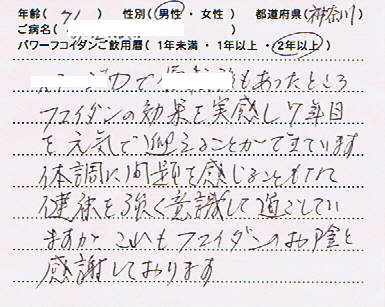 年齢( 71 ) 性別(男性・女性) 都道府県(神奈川)
ご病名(
パワーフコイダンご飲用暦(1年未満・1年以上・2年以上)
で もあったところ
フコイダンの効果を実感し7年目
を元気で迎えることができています
体調に問題を感じることもなく
健康を強く意識して過ごしてい
ますが、これもフコイダンのお陰と
感謝しております